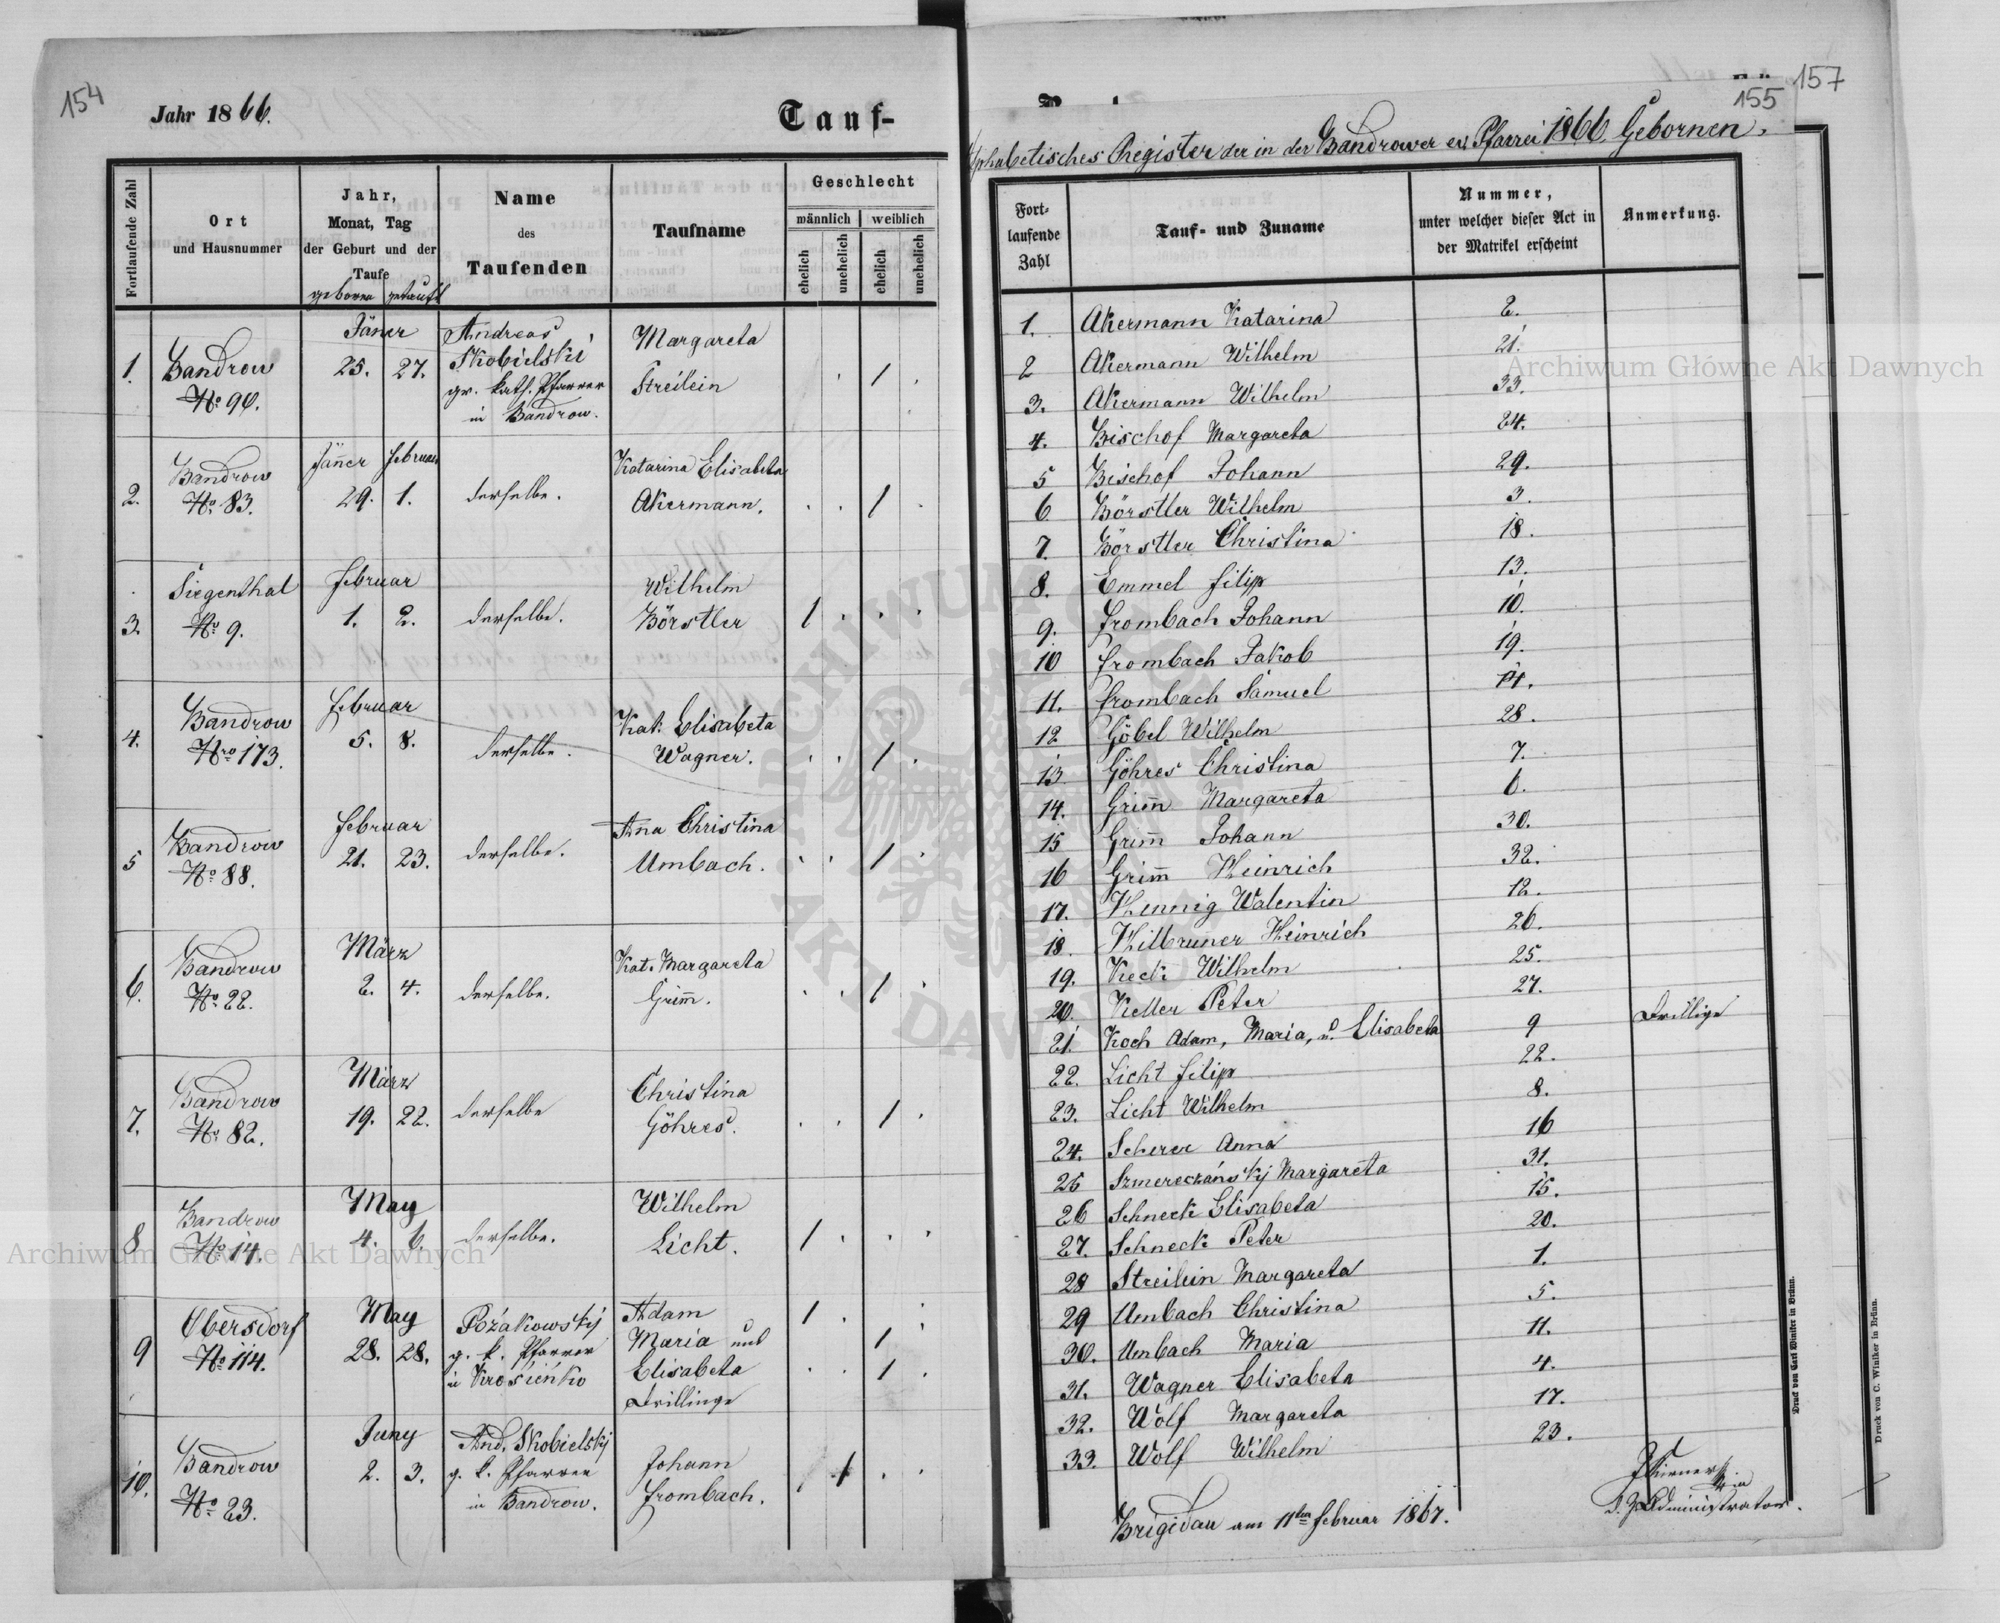 154
Jahr 1866.
Tauf-
Fortlaufende Zahl
Ort
und Hausnummer
Jahr,
Monat, Tag
der Geburt und der
Taufe
geboren getauft
Name
des
Taufenden
Taufname
Geschlecht
männlich weiblich
ehelich
unehelich
ehelich
unehelich
1. Bandrow
No 90.
Jäner
25. 27.
Andreas
Skobielski
gr. kath. Pfarrer
in Bandrow.
Margareta
Streilein
2. Bandrow
No 83.
Jäner Februar
29. 1.
derselbe.
Katarina Elisabeta
Akermann.
3. Siegenthal
No 9.
Februar
1. 2.
derselbe.
Wilhelm
Börstler
4. Bandrow
Nro 173.
Februar
5. 8.
derselbe.
Kat. Elisabeta
Wagner.
5 Bandrow
No 88.
Februar
21. 23.
derselbe.
Ana Christina
Umbach.
6. Bandrow
No 22.
März
2. 4.
derselbe.
Kat. Margareta
Grim̄.
7. Bandrow
No 82.
März
19. 22.
derselbe
Christina
Göhres.
8 Bandrow
No 14.
May
4. 6.
derselbe.
Wilhelm
Licht.
9 Obersdorf
No 114.
May
28. 28.
Pożakowskÿ
g. k. Pfarrer
in Krościeńko
Adam
Maria und
Elisabeta
Drillinge
10. Bandrow
No 23.
Juny
2. 3.
And. Skobielskÿ
g. k. Pfarrer
in Bandrow.
Johann
Frombach.
157
155
Alphabetisches Register der in der Bandrower ev. Pfarrei 1866 Gebornen.
Fort-
laufende
Zahl
Tauf- und Zuname
Nummer,
unter welcher dieser Act in
der Matrikel erscheint
Anmerkung.
1. Akermann Katarina 2.
2 Akermann Wilhelm 21.
3. Akermann Wilhelm 33.
4. Bischof Margareta 24.
5 Bischof Johann 29.
6 Börstler Wilhelm 3.
7. Börstler Christina 18.
8. Emmel Filip 13.
9. Frombach Johann 10.
10 Frombach Jakob 19.
11. Frombach Samuel 14.
12 Göbel Wilhelm 28.
13 Göhres Christina 7.
14. Grim̄ Margareta 6.
15 Grim̄ Johann 30.
16 Grim̄ Heinrich 32.
17. Hennig Walentin 12.
18. Hilbruner Heinrich 26.
19. Keck Wilhelm 25.
20. Keller Peter 27.
21. Koch Adam, Maria, u. Elisabeta 9 Drillige
22. Licht Filip 22.
23. Licht Wilhelm 8.
24. Scherer Anna 16
25 Szmereczánskÿ Margareta 31.
26 Schneck Elisabeta 15.
27. Schneck Peter 20.
28 Streilein Margareta 1.
29 Umbach Christina 5.
30. Umbach Maria 11.
31. Wagner Elisabeta 4.
32. Wolf Margareta 17.
33. Wolf Wilhelm 23.
Brigidau am 11ten Februar 1867.
Administrator.
Druck von Carl Winiker in Brünn.
Druck von C. Winiker in Brünn.
Archiwum Główne Akt Dawnych
Archiwum Główne Akt Dawnych